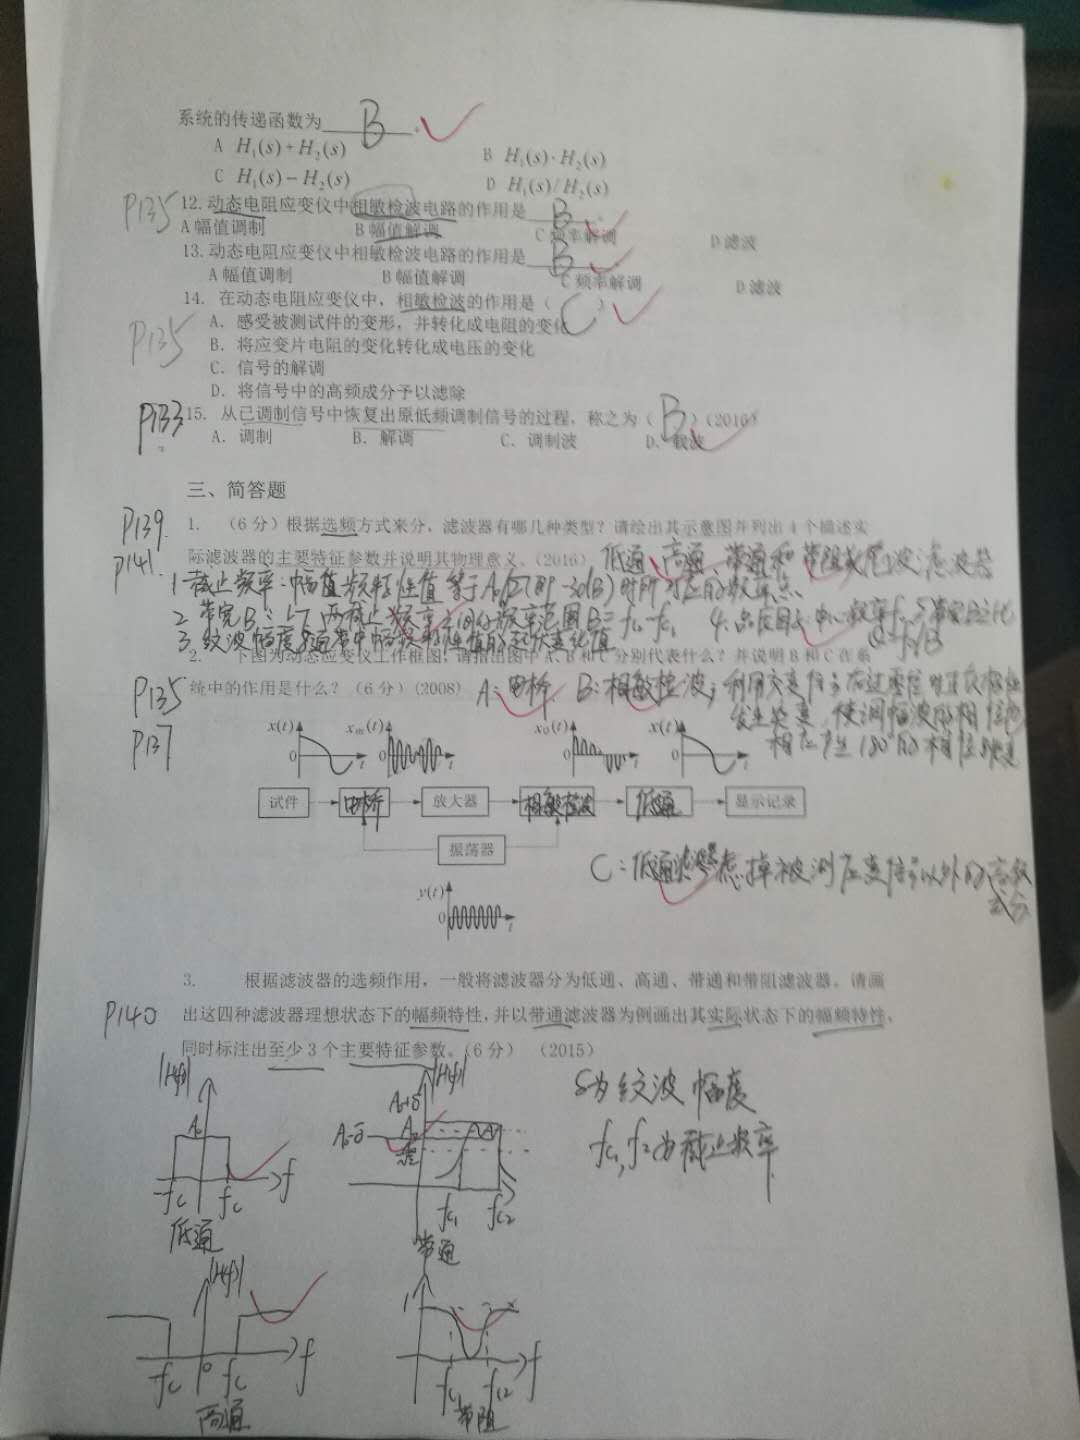 系统的传递函数为 B
A H₁(s)+H₂(s) B H₁(s)·H₂(s)
C H₁(s)−H₂(s) D H₁(s)/H₂(s)
P135 12.动态电阻应变仪中相敏检波电路的作用是 B
A 幅值调制 B 幅值解调 C 频率解调 D 滤波
13.动态电阻应变仪中相敏检波电路的作用是 B
A 幅值调制 B 幅值解调 C 频率解调 D 滤波
14. 在动态电阻应变仪中，相敏检波的作用是（ C ）
A．感受被测试件的变形，并转化成电阻的变化
P135 B．将应变片电阻的变化转化成电压的变化
C．信号的解调
D．将信号中的高频成分予以滤除
P133 15. 从已调制信号中恢复出原低频调制信号的过程，称之为（ B ）(2016)
A．调制 B．解调 C．调制波 D．载波
三、简答题
P139 1. （6分）根据选频方式来分，滤波器有哪几种类型？请绘出其示意图并列出4个描述实
P141 际滤波器的主要特征参数并说明其物理意义。(2016) 低通、高通、带通和带阻 滤波器
1.截止频率:幅值频特性值等于A₀/√2(即-3dB)时所对应的频率点
2.带宽B:上下两截止频率之间的频率范围B=fc₂-fc₁ 4.品质因子:中心频率f₀与带宽B之比
Q=f₀/B
3.纹波幅度:通带中幅频特性值的起伏变化值
2. 下图为动态应变仪工作框图，请指出图中A、B和C分别代表什么？并说明B和C在系
P135 统中的作用是什么？（6分）(2008) A:电桥 B:相敏检波,利用交变信号在过零位时正负极性
发生突变,使调幅波的相位也
P137 相应产生180°的相位跳变
x(t) xₘ(t) x₀(t) x(t)
0 t 0 t 0 t 0 t
试件 电桥 放大器 相敏检波 低通 显示记录
振荡器
C:低通滤波器:滤掉被测应变信号以外的高频
成分
y(t)
0 t
3. 根据滤波器的选频作用，一般将滤波器分为低通、高通、带通和带阻滤波器。请画
P140 出这四种滤波器理想状态下的幅频特性，并以带通滤波器为例画出其实际状态下的幅频特性，
同时标注出至少3个主要特征参数。（6分） （2015）
|H(f)| |H(f)|
A₀+δ δ为纹波幅度
A₀ A₀-δ A₀
fc₁,fc₂为截止频率
-fc fc f fc₁ fc₂
低通 带通
|H(f)| 1
-fc 0 fc f fc₁ fc₂ f
高通 带阻